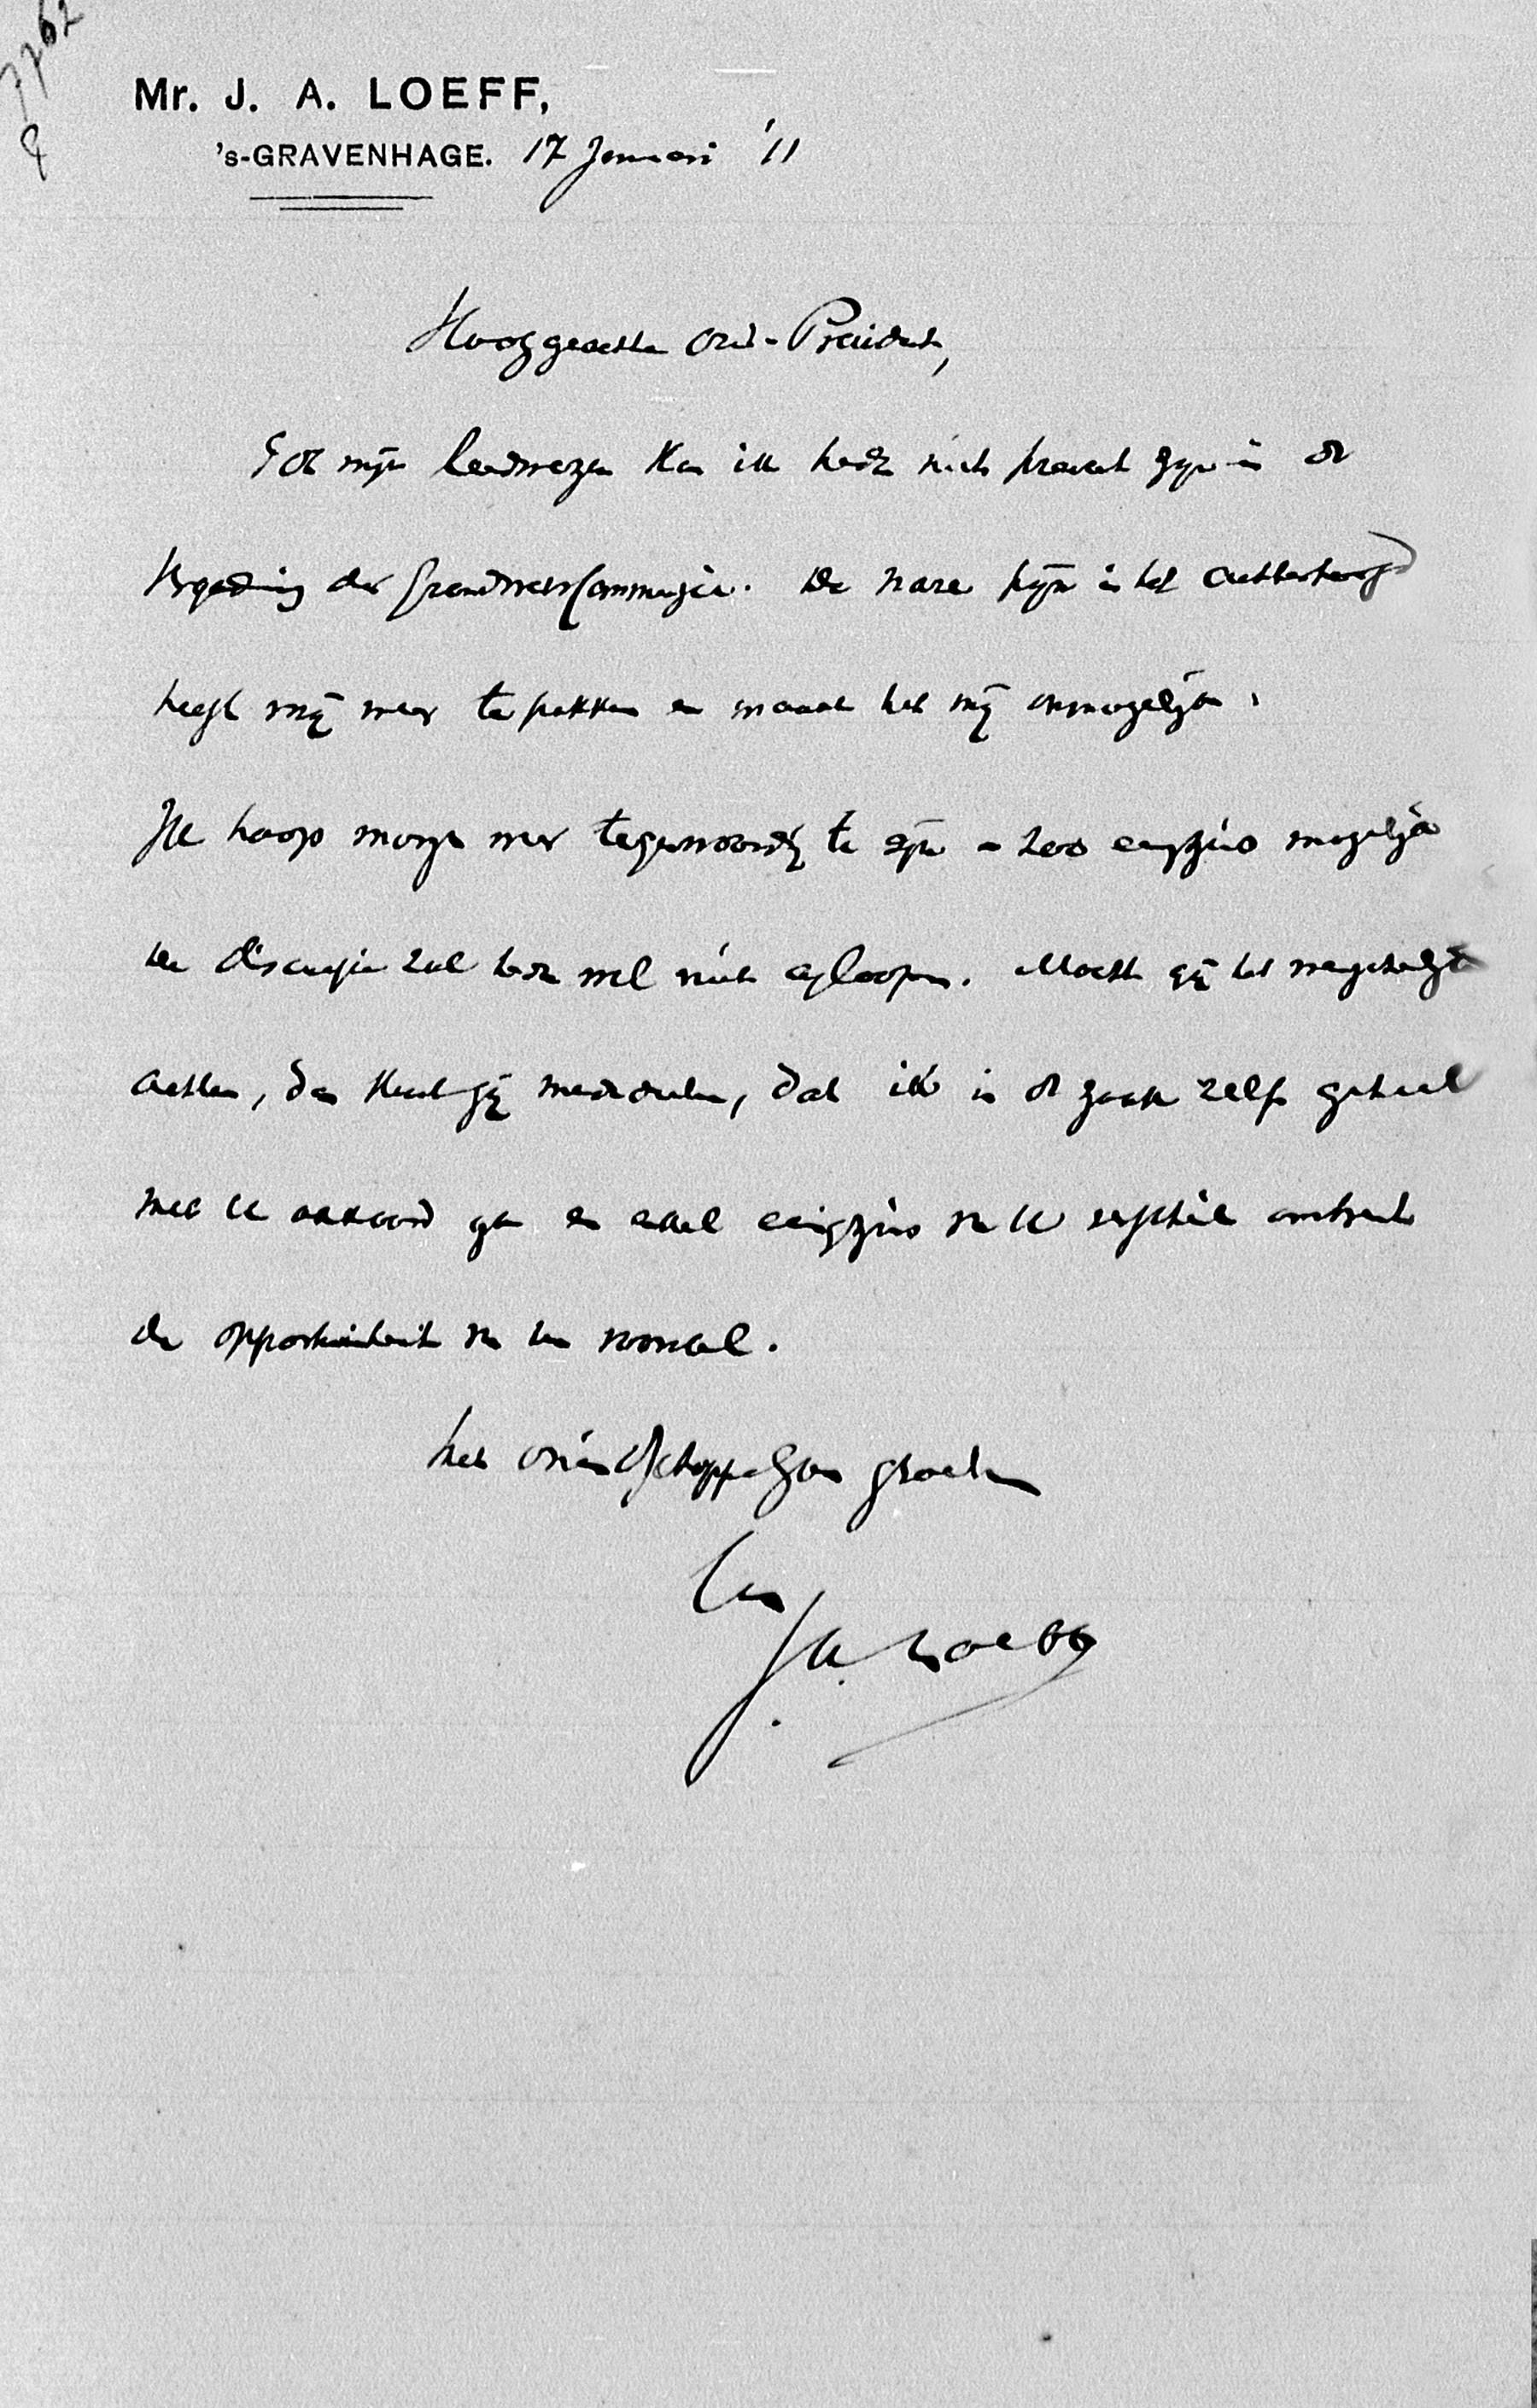 7762
Mr. J. A. LOEFF,
's-GRAVENHAGE. 17 Januari '11
Hooggeachte Oud-President,
Tot mijn leedwezen kan ik heden niet present zijn in de
Vergadering der Grondwetscommissie. De nare pijn in het achterhoofd
heeft mij weer te pakken en maakt het mij onmogelijk.
Ik hoop morgen weer tegenwoordig te zijn – zoo eenigzins mogelijk
De discussie zal heden wel niet afloopen. Mocht gij het wenschelijk
achten, dan kunt gij mededeelen, dat ik in de zaak zelf geheel
met U accoord ga en enkel eenigzins van U verschil omtrent
de opportuniteit van een voorstel.
Met vriendschappelijken groeten
Uw
J. A. Loeff